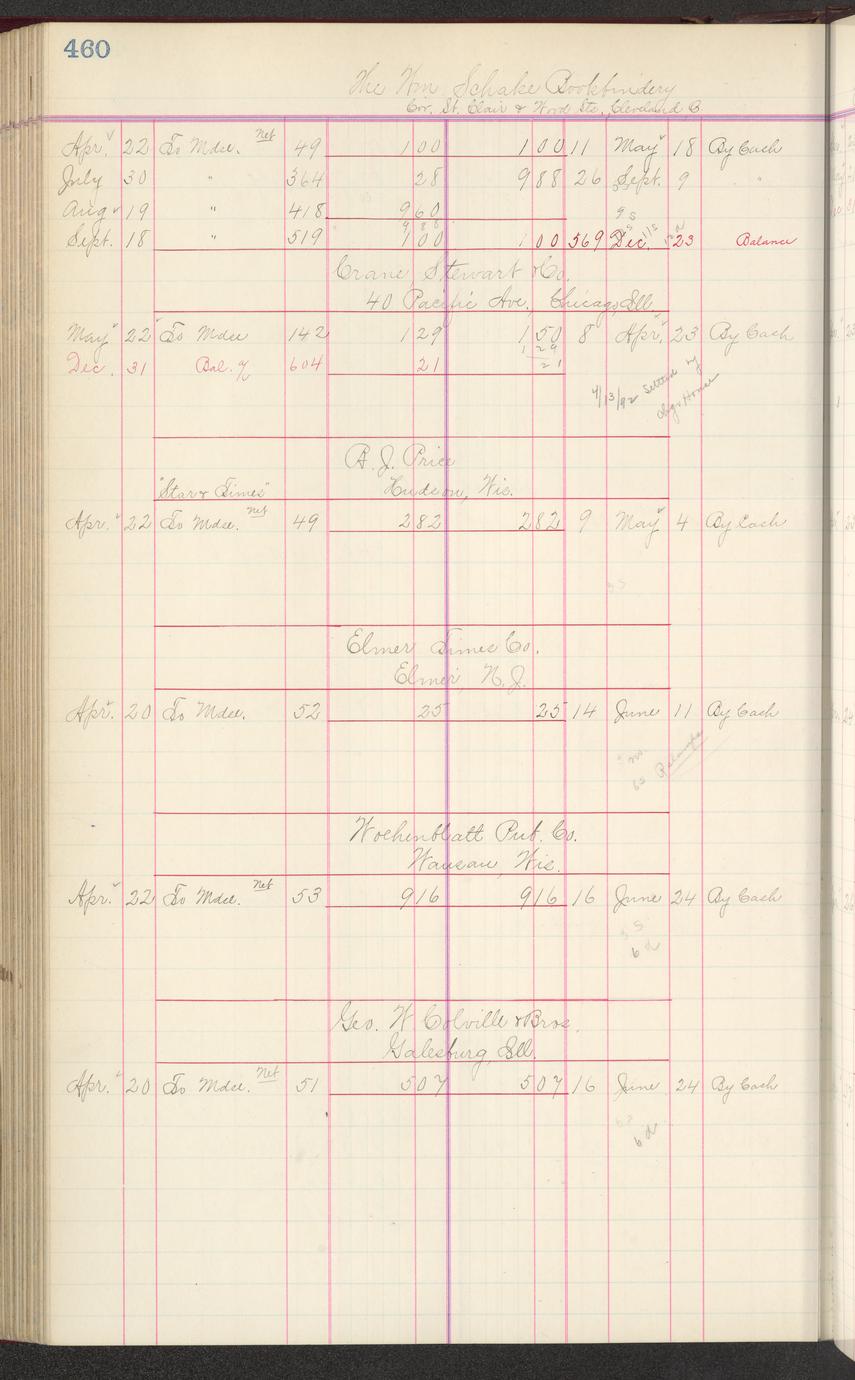 460
The Wm Schake Bookbindery
Cor. St. Clair & Wood Sts., Cleveland O
Apr. 22 To Mdse. Net 49 1 00 1 00 11 May 18 By Cash
July 30 " 364 28 9 88 26 Sept. 9 "
Aug 19 " 418 9 60
9 88
Sept. 18 " 519 1 00 1 00 569 Dec. 23 Balance
Crane Stewart & Co.
40 Pacific Ave., Chicago, Ill.
May 22 To Mdse 142 1 29 1 50 8 Apr. 23 By Cash
1 29
Dec. 31 Bal. 604 21 21
4/13/92 Settled by
Chgo House
A. J. Price
"Star & Times" Hudson, Wis.
Apr. 22 To Mdse. Net 49 2 82 2 82 9 May 4 By Cash
Elmer Times Co.
Elmer, N. J.
Apr. 20 To Mdse. 52 25 25 14 June 11 By Cash
Wochenblatt Pub. Co.
Wausau, Wis.
Apr. 22 To Mdse. Net 53 9 16 9 16 16 June 24 By Cash
Geo. W Colville & Bros.
Galesburg, Ill.
Apr. 20 To Mdse. Net 51 5 07 5 07 16 June 24 By Cash